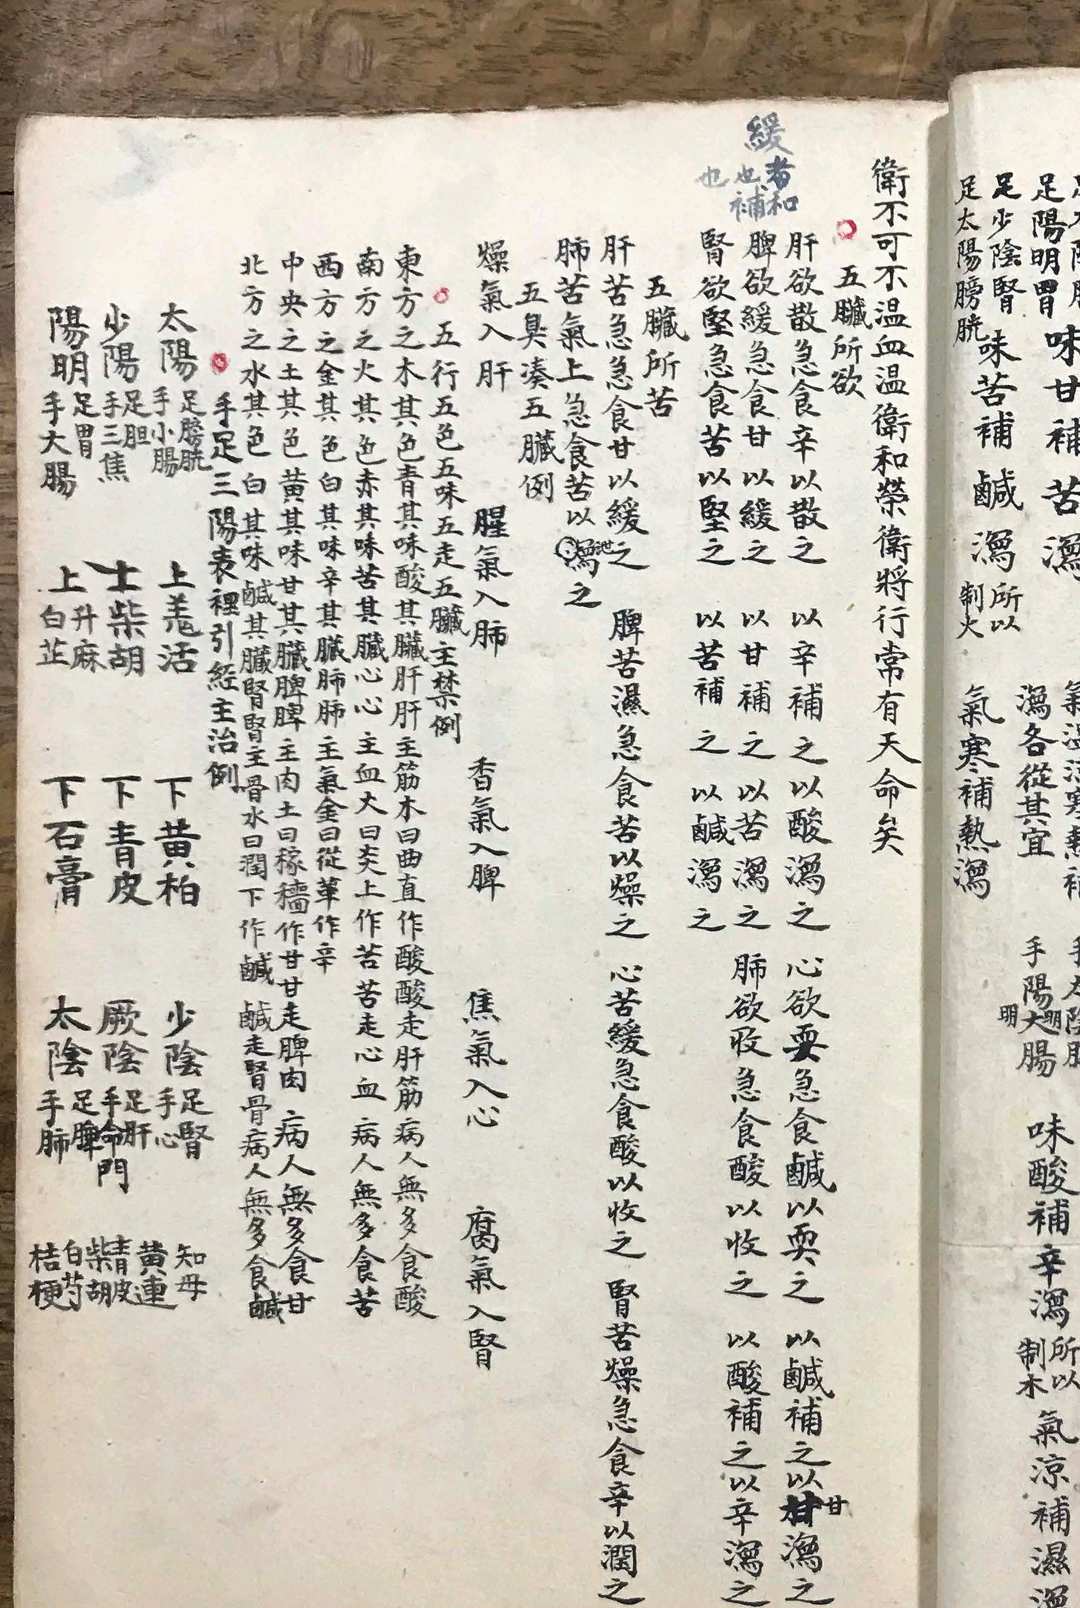 足陽明胃 味甘補苦瀉 氣溫涼寒熱補
瀉各從其宜
手陽明大腸 味酸補辛瀉 所以制木 氣涼補濕
足少陰腎
足太陽膀胱 味苦補鹹瀉 所以制火 氣寒補熱瀉
衛不可不温血温衛和榮衛將行常有天命矣
緩者和也補也
五臟所欲
肝欲散急食辛以散之 以辛補之以酸瀉之 心欲耎急食鹹以耎之 以鹹補之以甘瀉之
脾欲緩急食甘以緩之 以甘補之以苦瀉之 肺欲收急食酸以收之 以酸補之以辛瀉之
腎欲堅急食苦以堅之 以苦補之以鹹瀉之
五臟所苦
肝苦急急食甘以緩之 脾苦濕急食苦以燥之 心苦緩急食酸以收之 腎苦燥急食辛以潤之
肺苦氣上急食苦以瀉泄之
五臭凑五臟例
燥氣入肝 腥氣入肺 香氣入脾 焦氣入心 腐氣入腎
五行五色五味五走五臟主禁例
東方之木其色青其味酸其臟肝肝主筋木曰曲直作酸酸走肝筋病人無多食酸
南方之火其色赤其味苦其臟心心主血火曰炎上作苦苦走心血 病人無多食苦
西方之金其色白其味辛其臟肺肺主氣金曰從革作辛
中央之土其色黄其味甘其臟脾脾主肉土曰稼穡作甘甘走脾肉 病人無多食甘
北方之水其色白其味鹹其臟腎腎主骨水曰潤下作鹹 鹹走腎骨病人無多食鹹
手足三陽表裡引経主治例
太陽 足膀胱 手小腸 上羗活 下黄柏 少陰 足腎 手心 知母 黄連
少陽 足胆 手三焦 上柴胡 下青皮 厥陰 足肝 手命門 青皮 柴胡
陽明 足胃 手大腸 上升麻 白芷 下石膏 太陰 足脾 手肺 白芍 桔梗